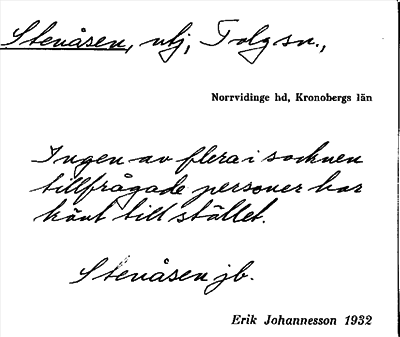 Stenåsen, utj, Tolg sn.,
Norrvidinge hd, Kronobergs län
Ingen av flera i socknen
tillfrågade personer har
känt till stället.
Stenåsen jb.
Erik Johannesson 1932